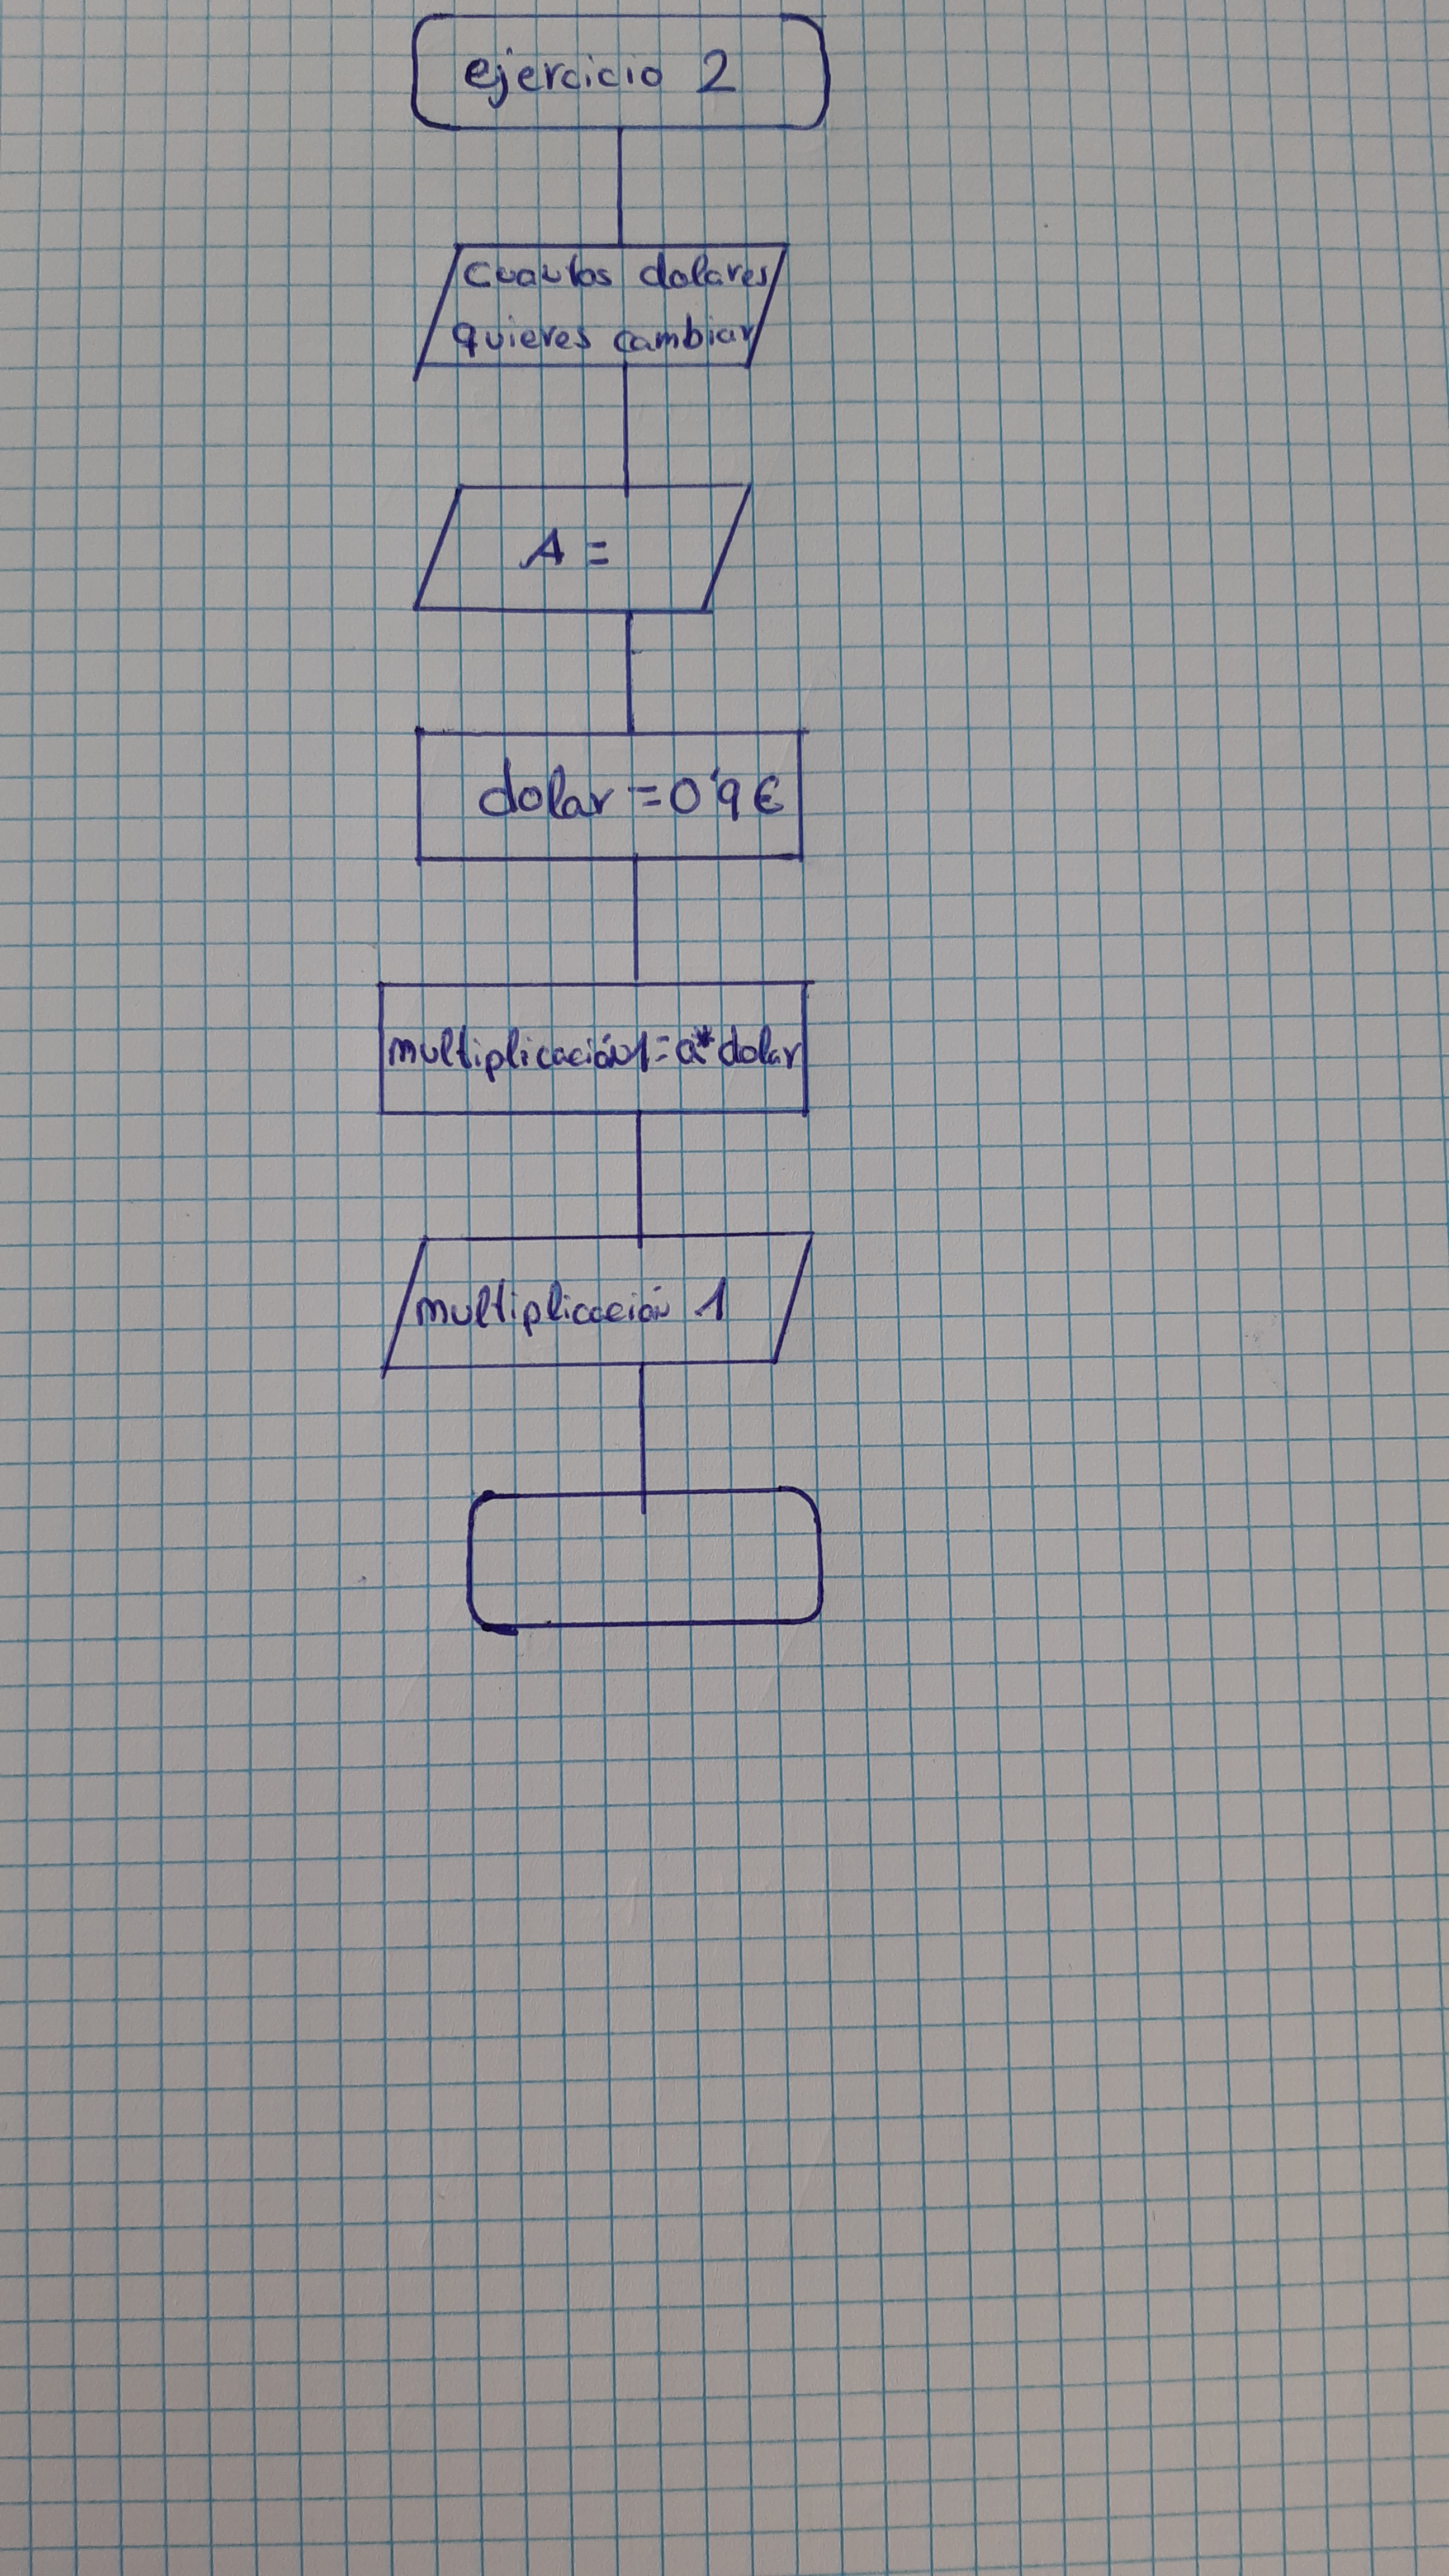 ejercicio 2
cuantos dolares
quieres cambiar
A =
dolar = 0'9 €
multiplicación1 = a * dolar
multiplicación 1